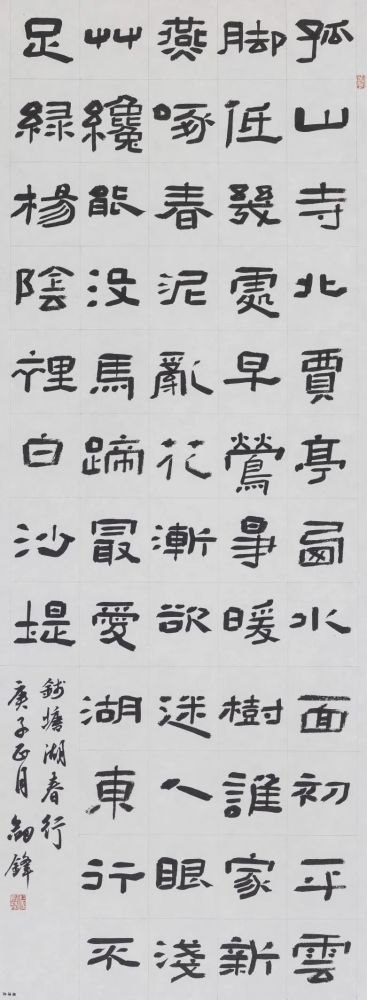 孤山寺北賈亭西水面初平雲
脚低幾處早鶯爭暖樹誰家新
燕啄春泥亂花漸欲迷人眼淺
艸纔能没馬蹄最愛湖東行不
足緑楊陰裡白沙堤
錢塘湖春行
庚子正月劍鋒